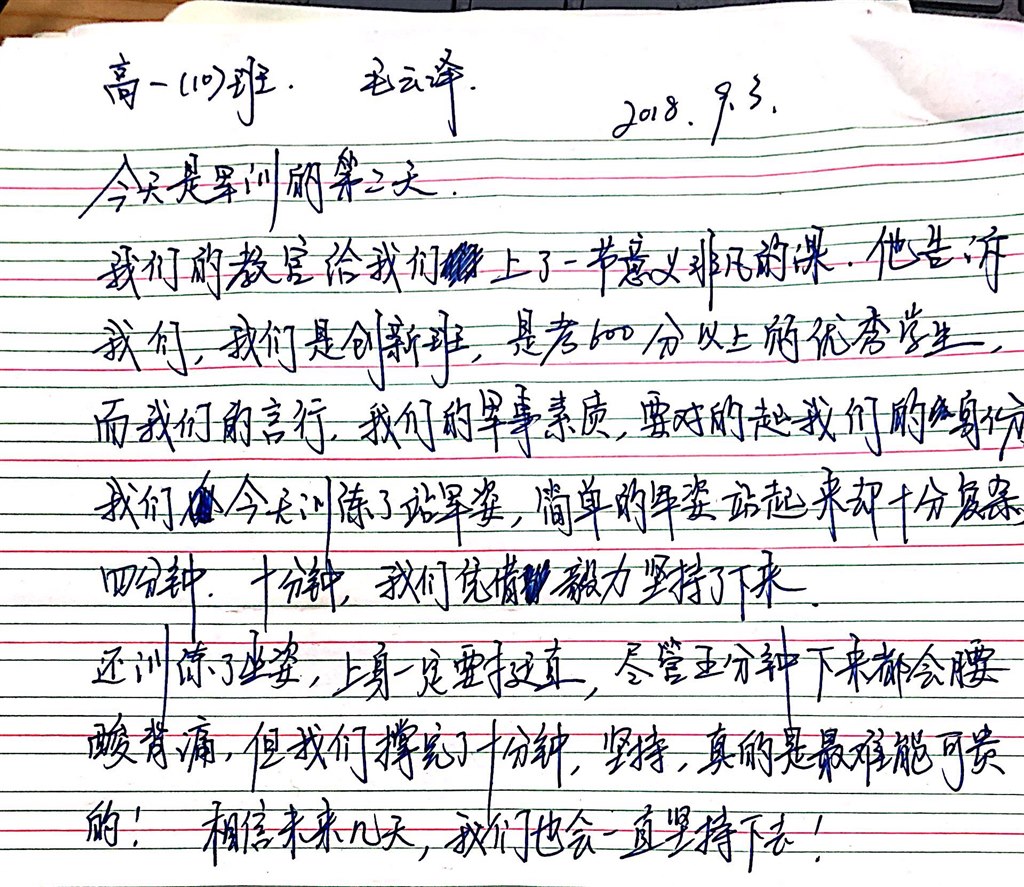 高一(10)班. 毛云泽. 2018. 9. 3.
今天是军训的第二天.
我们的教官给我们上了一节意义非凡的课. 他告诉
我们, 我们是创新班, 是考600分以上的优秀学生,
而我们的言行, 我们的军事素质, 要对的起我们的身份
我们今天训练了站军姿, 简单的军姿站起来却十分复杂
四分钟. 十分钟, 我们凭借毅力坚持了下来.
还训练了坐姿, 上身一定要挺直, 尽管五分钟下来都会腰
酸背痛, 但我们撑完了十分钟, 坚持, 真的是最难能可贵
的! 相信未来几天, 我们也会一直坚持下去!